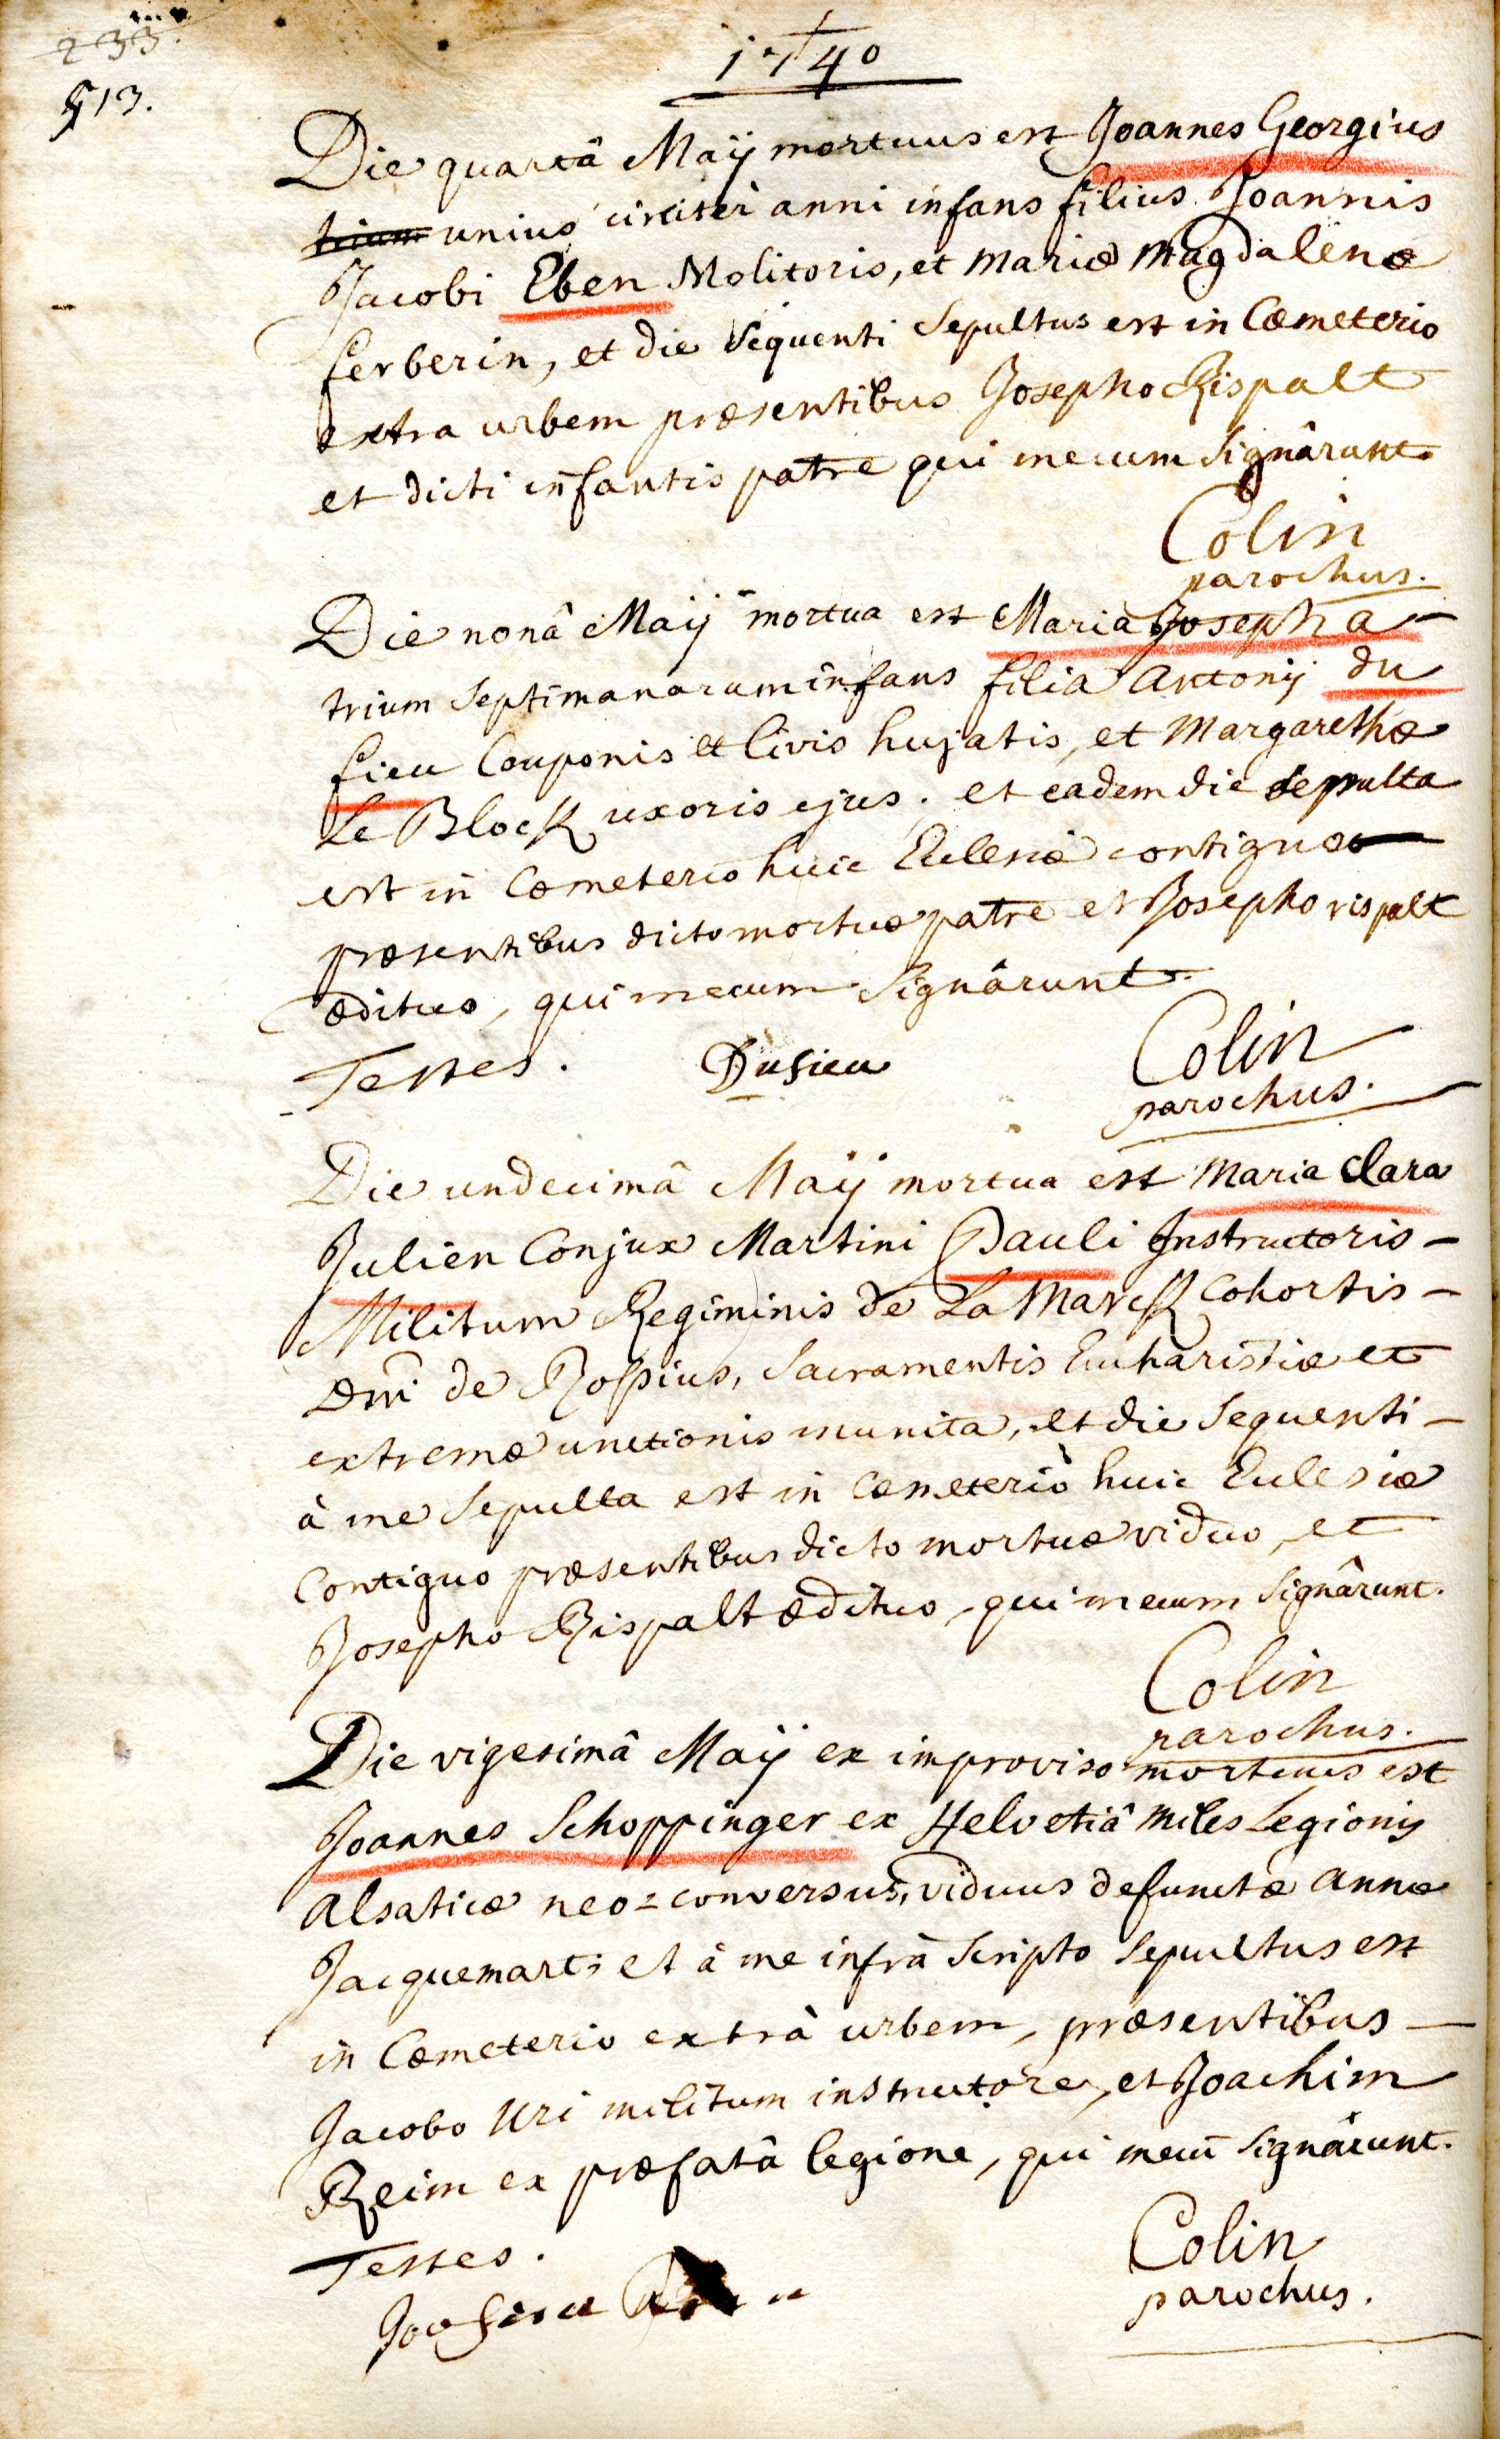 233.
513.
1740
Die quartâ Maÿ mortuus est Joannes Georgius
trium unius circiter anni infans filius Joannis
Jacobi Eben Molitoris, et Mariæ Magdalenæ
ferberin, et die sequenti sepultus est in Cœmeterio
extra urbem præsentibus Josepho Rispalt
et dicti infantis patre qui mecum signârunt.
Colin
parochus.
Die nonâ Maÿ mortua est Maria Josepha
trium septimanarum infans filia Antonij du
fieu Couponis et Civis hujatis, et Margarethæ
Le Block uxoris ejus. et eadem die sepulta
est in Cœmeterio huic Ecclesiæ contiguo
præsentibus dicto mortuæ patre et Josepho rispalt
ædituo, qui mecum signârunt
Testes. Dufieu
Colin
parochus.
Die undecimâ Maÿ mortua est Maria Clara
Julien Conjux Martini Pauli Instructoris
Militum Regiminis de La Marck Cohortis
Dni de Rossius, Sacramentis Eucharistiæ et
extremæ unctionis munita, et die sequenti
à me sepulta est in Cœmeterio huic Ecclesiæ
Contiguo præsentibus dicto mortuæ viduo, et
Josepho Rispalt ædituo, qui mecum signârunt.
Colin
parochus.
Die vigesimâ Maÿ ex improviso mortuus est
Joannes Schoppinger ex Helvetiâ miles Legionis
Alsaticæ neo-conversus, viduus defunctæ Annæ
Jacquemart; et à me infrà scripto sepultus est
in Cœmeterio extrà urbem, præsentibus
Jacobo Uri militum instructore, et Joachim
Reim ex præfatâ legione, qui mecũ signârunt.
Testes.
Colin
parochus.